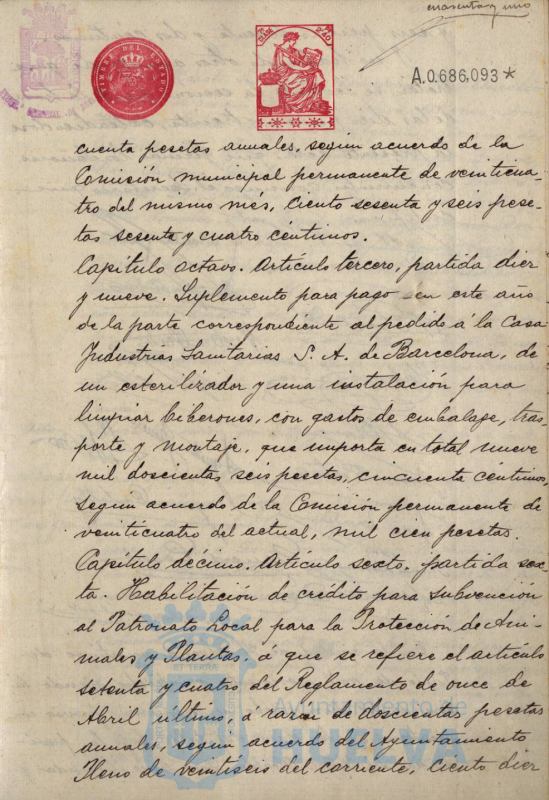 cuarenta y uno
TIMBRE DEL ESTADO
A.0.686,093*
cuenta pesetas anuales, según acuerdo de la
Comisión municipal permanente de veinticua-
tro del mismo mes, Ciento sesenta y seis pese-
tas sesenta y cuatro céntimos.
Capítulo octavo. Artículo tercero, partida diez
y nueve. Suplemento para pago en este año
de la parte correspondiente al pedido á la Casa
Industrias Sanitarias S. A. de Barcelona, de
un esterilizador y una instalación para
limpiar biberones, con gastos de embalage, tras-
porte y montaje, que importa en total nueve
mil doscientas seis pesetas, cincuenta céntimos,
según acuerdo de la Comisión permanente de
veinticuatro del actual, mil cien pesetas.
Capítulo décimo. Artículo sexto. partida sex-
ta. Habilitación de crédito para subvención
al Patronato Local para la Protección de Ani-
males y Plantas, á que se refiere el artículo
setenta y cuatro del Reglamento de once de
Abril último, á razon de doscientas pesetas
anuales, según acuerdo del Ayuntamiento
Pleno de veintiseis del corriente, Ciento diez
Ayuntamiento de
HUELVA